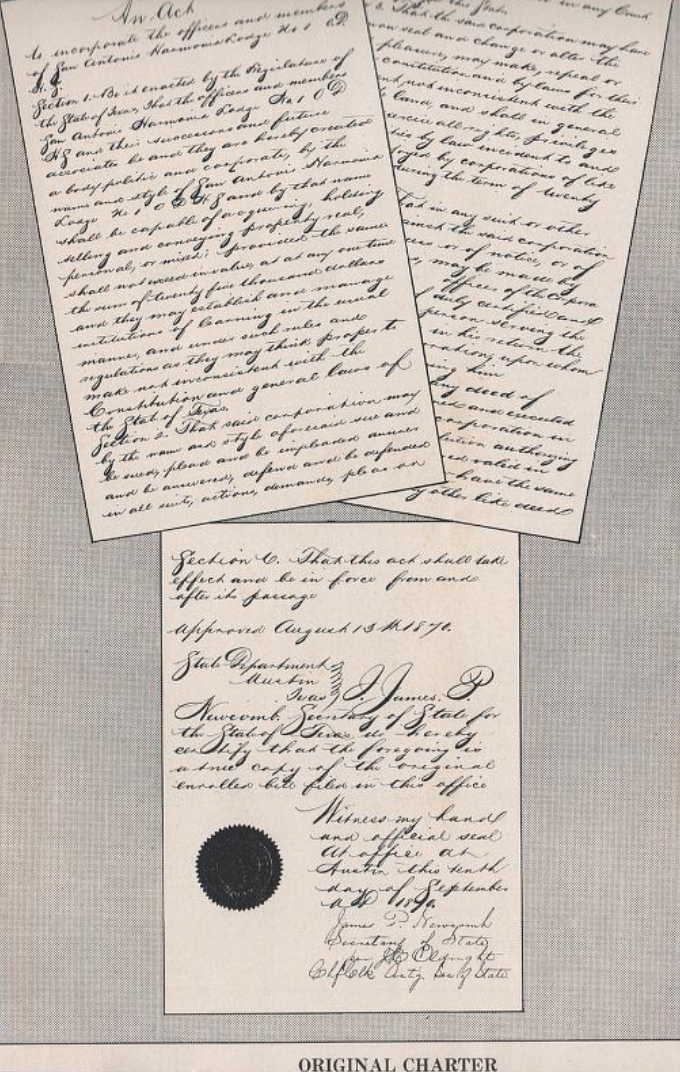 An Act
to incorporate the officers and members
of San Antonio Harmonia Lodge No 1 O.D.
H.S.
Section 1. Be it enacted by the Legislature of
the State of Texas, That the officers and members
San Antonio Harmonia Lodge No 1 O D
H S and their successors and future
associates be and they are hereby created
a body politic and corporate, by the
name and style of San Antonio Harmonia
Lodge No 1 O D H S and by that name
shall be capable of acquiring, holding
selling and conveying property real,
personal, or mixed; provided the same
shall not exceed in value, at any one time
the sum of twenty five thousand dollars
and they may establish and manage
institutions of learning in the usual
manner, and under such rules and
regulations as they may think proper to
make not inconsistent with the
Constitution and general laws of
the State of Texas.
Section 2. That said corporation may
by the name and style aforesaid sue and
be sued, plead and be impleaded answer
and be answered, defend and be defended
in all suits, actions, demands, pleas or
in any Court
the State
That the said corporation may have
seal and change or alter the
pleasure, may make, repeal or
constitution and by laws for their
not inconsistent with the
land, and shall in general
all rights, privileges
by law incident to and
by corporations of like
during the term of twenty
That in any suit or other
the said corporation
or of notice, or of
may be made by
officers of the corpora
duly certified and
person serving the
in his return the
upon whom
him
any deed of
and executed
corporation in
authorizing
valid in
have the same
other like deed
Section 6. That this act shall take
effect and be in force from and
after its passage
Approved August 13th 1870.
State Department
Austin
Texas } I, James. P
Newcomb, Secretary of State for
the State of Texas do hereby
certify that the foregoing is
a true copy of the original
enrolled bill filed in this office
Witness my hand
and official seal
At office at
Austin this tenth
day of September
AD 1870.
James P. Newcomb
Secretary of State
Chf Clk Actg Sec of State
ORIGINAL CHARTER